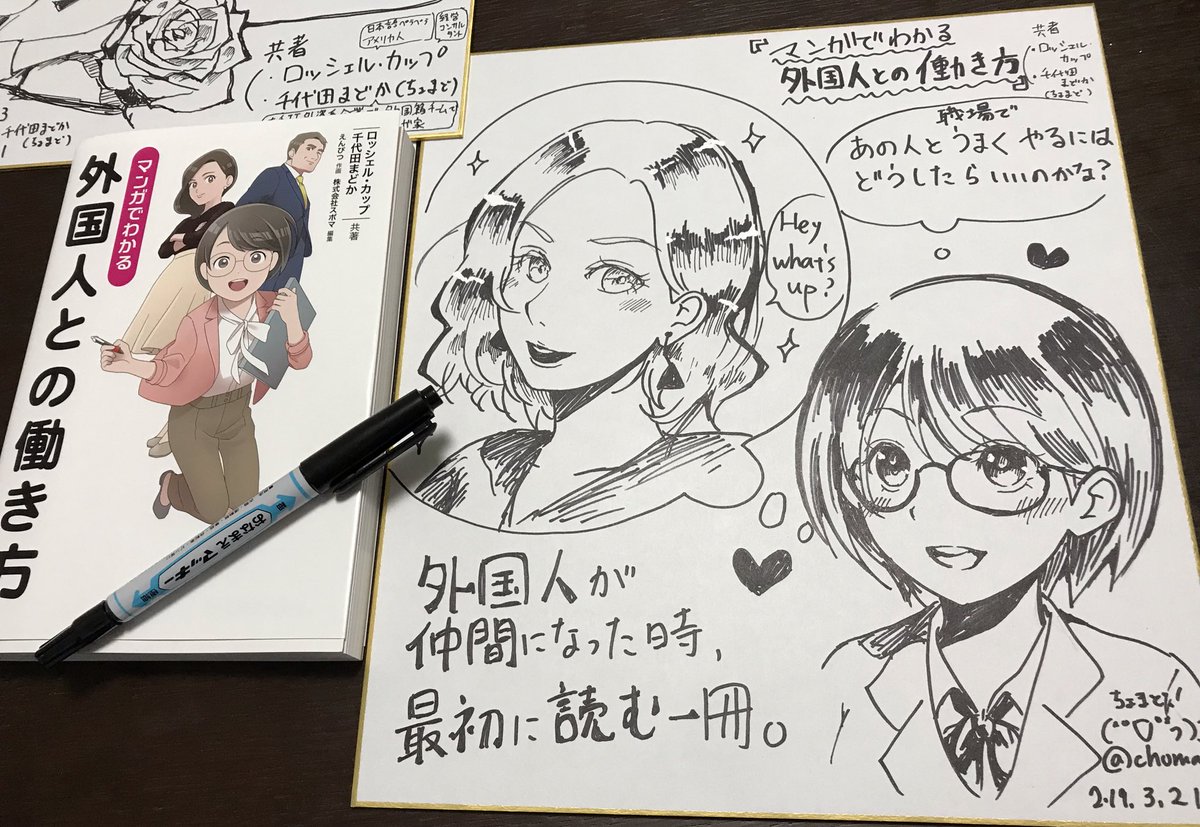 共者
・ロッシェル・カップ
・千代田まどか(ちょまど)
日本語ぺらぺら
アメリカ人
経営
コンサル
タント
千代田まどか
(ちょまど)
ロッシェル・カップ
千代田まどか
共著
えんぴつ 作画
株式会社スポマ 編集
マンガでわかる
外国人との働き方
おなまえマッキー
『マンガでわかる
外国人との働き方』
共者
・ロッシェル・
カップ
・千代田
まどか
(ちょまど)
職場で
あの人とうまくやるには
どうしたらいいのかな?
Hey
what's
up?
外国人が
仲間になった時、
最初に読む一冊。
ちょまど
@choma
2019.3.21